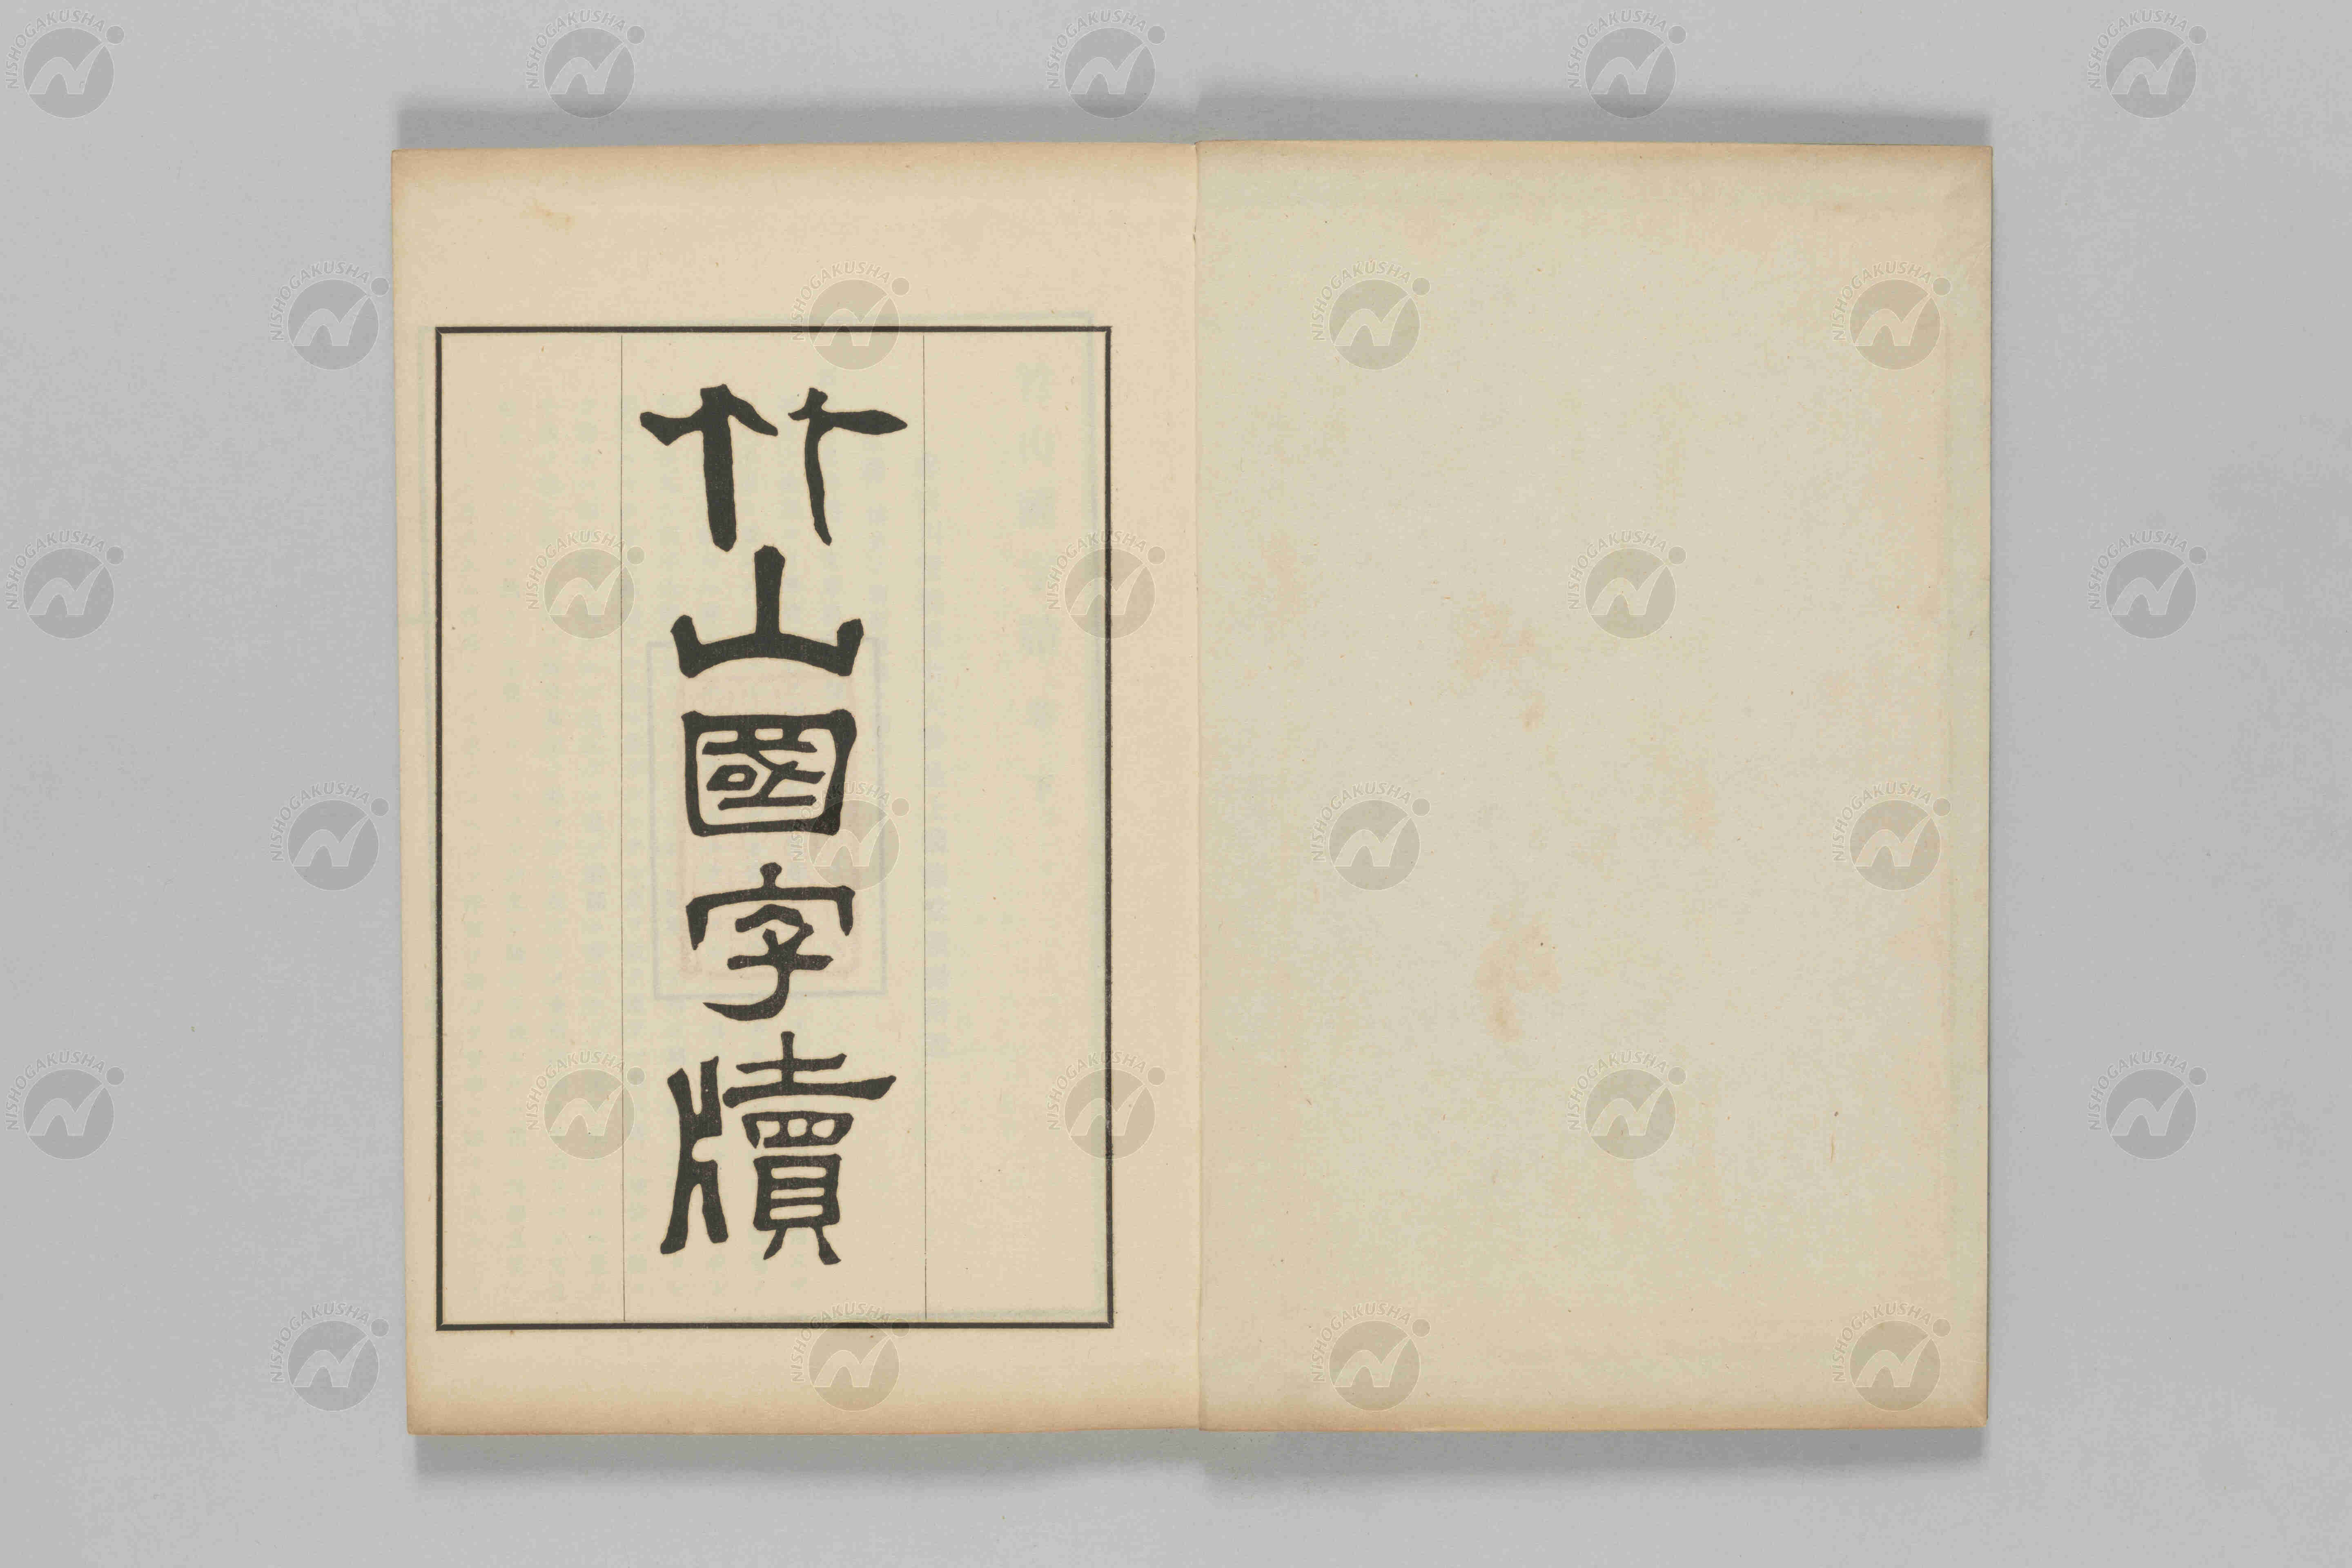 竹山國字牘
NISHOGAKUSHA